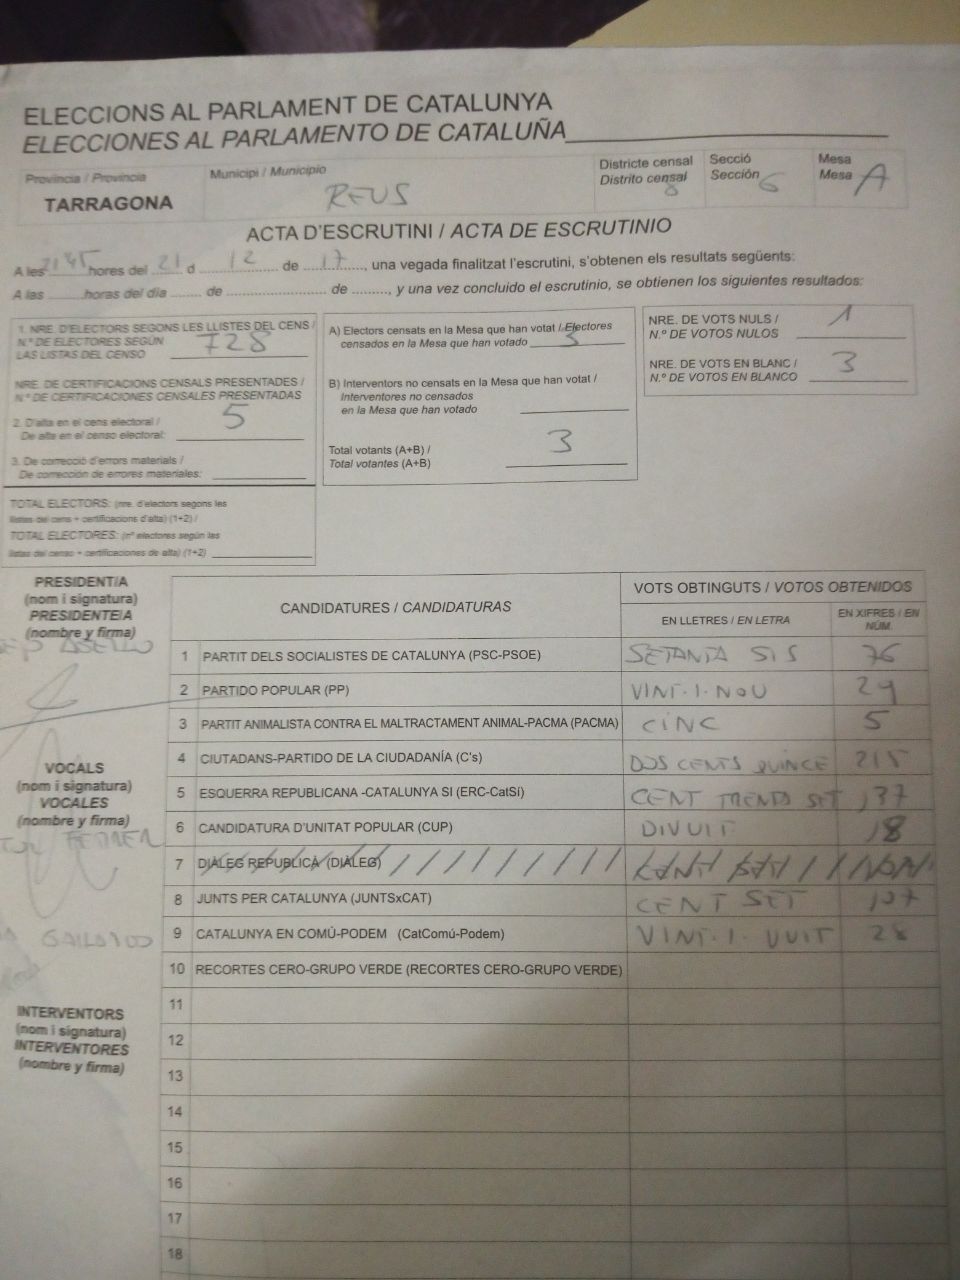 ELECCIONS AL PARLAMENT DE CATALUNYA
ELECCIONES AL PARLAMENTO DE CATALUÑA
Provincia / Provincia
TARRAGONA
Municipi / Municipio
REUS
Districte censal
Distrito censal
8
Secció
Sección 6
Mesa
Mesa A
ACTA D'ESCRUTINI / ACTA DE ESCRUTINIO
A les 21'45 hores del 21 d 12 de 17, una vegada finalitzat l'escrutini, s'obtenen els resultats següents:
A las horas del día de de, y una vez concluido el escrutinio, se obtienen los siguientes resultados:
1. NRE. D'ELECTORS SEGONS LES LLISTES DEL CENS /
N.º DE ELECTORES SEGÚN
LAS LISTAS DEL CENSO 728
NRE. DE CERTIFICACIONS CENSALS PRESENTADES /
N.º DE CERTIFICACIONES CENSALES PRESENTADAS
5
2. D'alta en el cens electoral /
De alta en el censo electoral:
3. De correcció d'errors materials /
De corrección de errores materiales:
TOTAL ELECTORS: (nre. d'electors segons les
llistes del cens + certificacions d'alta) (1+2) /
TOTAL ELECTORES: (nº electores según las
listas del censo + certificaciones de alta) (1+2)
A) Electors censats en la Mesa que han votat / Electores
censados en la Mesa que han votado 3
B) Interventors no censats en la Mesa que han votat /
Interventores no censados
en la Mesa que han votado
Total votants (A+B) /
Total votantes (A+B)
3
NRE. DE VOTS NULS /
N.º DE VOTOS NULOS
1
NRE. DE VOTS EN BLANC /
N.º DE VOTOS EN BLANCO
3
PRESIDENT/A
(nom i signatura)
PRESIDENTE/A
(nombre y firma)
VOCALS
(nom i signatura)
VOCALES
(nombre y firma)
INTERVENTORS
(nom i signatura)
INTERVENTORES
(nombre y firma)
CANDIDATURES / CANDIDATURAS
VOTS OBTINGUTS / VOTOS OBTENIDOS
EN LLETRES / EN LETRA
EN XIFRES / EN
NÚM.
1 PARTIT DELS SOCIALISTES DE CATALUNYA (PSC-PSOE) SETANTA SIS 76
2 PARTIDO POPULAR (PP) VINT·I·NOU 29
3 PARTIT ANIMALISTA CONTRA EL MALTRACTAMENT ANIMAL-PACMA (PACMA) CINC 5
4 CIUTADANS-PARTIDO DE LA CIUDADANÍA (C's) DOS CENTS QUINCE 215
5 ESQUERRA REPUBLICANA -CATALUNYA SI (ERC-CatSí) CENT TRENTA SET 137
6 CANDIDATURA D'UNITAT POPULAR (CUP) DIVUIT 18
7 DIÀLEG REPUBLICÀ (DIÀLEG)
8 JUNTS PER CATALUNYA (JUNTSxCAT) CENT SET 107
9 CATALUNYA EN COMÚ-PODEM (CatComú-Podem) VINT·I·VUIT 28
10 RECORTES CERO-GRUPO VERDE (RECORTES CERO-GRUPO VERDE)
11
12
13
14
15
16
17
18